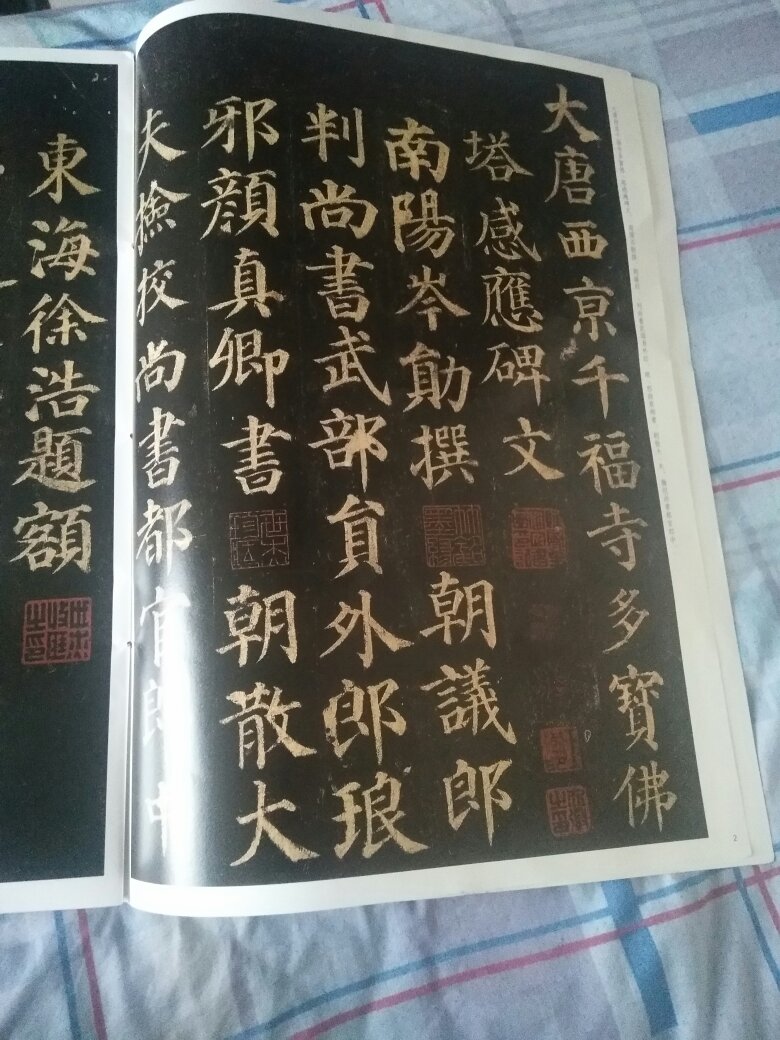 大唐西亰千福寺多寶佛
塔感應碑文
南陽岑勛撰 朝議郎
判尚書武部貟外郎琅
邪顏真卿書 朝散大
夫撿挍尚書都官郎中
東海徐浩題額
2